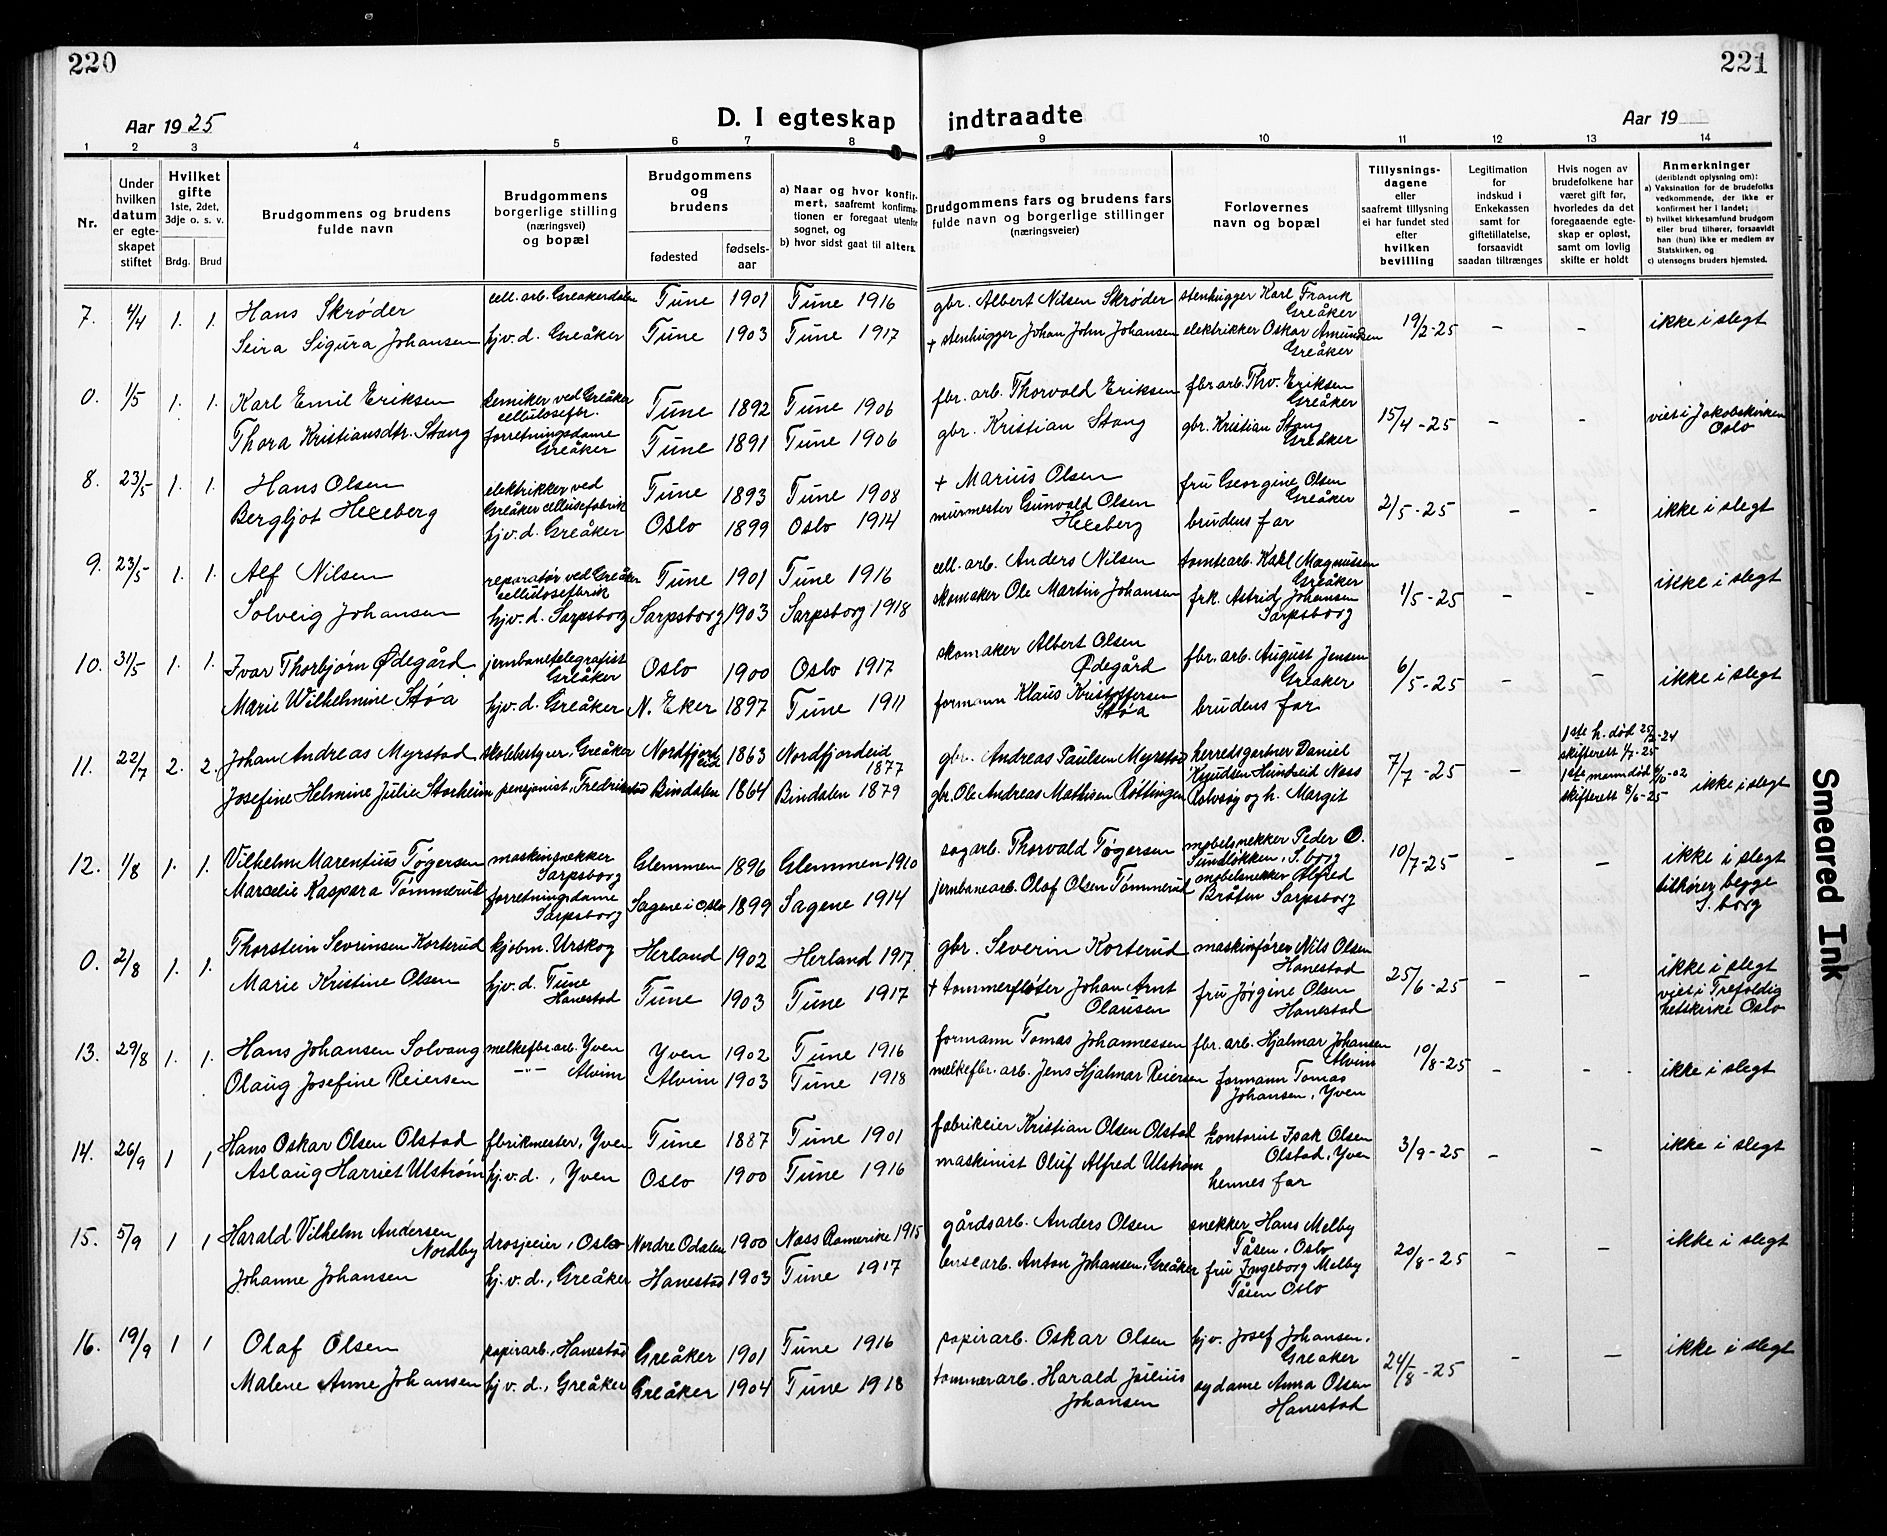 220
221
Aar 1925
D. I egteskap
indtraadte
Aar 19
1 2 3 4 5 6 7 8 9 10 11 12 13 14
Nr.
Under hvilken datum er egteskapet stiftet
Hvilket gifte 1ste, 2det, 3dje o. s. v.
Brdg. Brud
Brudgommens og brudens fulde navn
Brudgommens borgerlige stilling (næringsvei) og bopæl
Brudgommens og brudens
fødested
fødselsaar
a) Naar og hvor konfirmert, saafremt konfirmationen er foregaat utenfor sognet, og
b) hvor sidst gaat til alters.
Brudgommens fars og brudens fars fulde navn og borgerlige stillinger (næringsveier)
Forloverens navn og bopæl
Tillysningsdagene eller saafremt tillysning ei har fundet sted efter hvilken bevilling
Legitimation for indskud i Enkekassen samt for giftetillatelse, forsaavidt saadan tiltrænges
Hvis nogen av brudefolkene har været gift før, hvorledes da det foregaaende egteskap er opløst, samt om lovlig skifte er holdt
Anmerkninger (deriblandt oplysning om):
a) Vaksination for de brudefolks vedkommende, der ikke er konfirmert her i landet;
b) hvilket kirkesamfund brudgom eller brud tilhører, forsaavidt han (hun) ikke er medlem av Statskirken, og
c) utensogns bruders hjemsted.
7. 4/4 1. 1. Hans Skrøder cell. arb. Greåkerdalen Tune 1901 Tune 1916 gbr. Albert Nilsen Skrøder stenhugger Karl Frank Greåker 19/2-25 - - ikke i slegt
Seira Sigura Johansen hjv. d. Greåker Tune 1903 Tune 1917 + stenhugger Johan John Johansen elektrikker Oskar Amundsen Greåker
0. 1/5 1. 1. Karl Emil Eriksen kemiker ved Greåker cellulosefbr. Tune 1892 Tune 1906 fbr. arb. Thorvald Eriksen fbr arb. Thv. Eriksen Greåker 15/4-25 - - viet i Jakobskirken Oslo
Thora Kristiansdtr. Stang forretningsdame Greåker Tune 1891 Tune 1906 gbr. Kristian Stang gbr. Kristian Stang Greåker
8. 23/5 1. 1. Hans Olsen elektrikker ved Greåker cellulsefabrik Tune 1893 Tune 1908 + Marius Olsen fru Georgine Olsen Greåker 2/5-25 - - ikke i slegt
Bergljot Hexeberg hjv. d. Greåker Oslo 1899 Oslo 1914 murmester Gunvald Olsen Hexeberg brudens far
9. 23/5 1. 1. Alf Nilsen reparatør ved Greåker cellulosefbrik Tune 1901 Tune 1916 cell. arb. Anders Nilsen tomtearb. Karl Magnussen Greåker 1/5-25 - - ikke i slegt
Solveig Johansen hjv. d. Sarpsborg Sarpsborg 1903 Sarpsborg 1918 skomaker Ole Martin Johansen frk. Astrid Johansen Sarpsborg
10. 31/5 1. 1. Ivar Thorbjørn Ødegård jernbanetelegrafist Greåker Oslo 1900 Oslo 1917 skomaker Albert Olsen Ødegård fbr. arb. August Jensen Greaker 6/5-25 - - ikke i slegt
Marie Wilhelmine Støa hjv. d. Greåker N. Eker 1897 Tune 1911 formann Klaus Kristoffersen Støa brudens far
11. 22/7 2. 2. Johan Andreas Myrstad skolebstyrer, Greåker Nordfjordeid 1863 Nordfjordeid 1877 gbr. Andreas Paulsen Myrstad herredsgartner Daniel Knudsen Hundseid Nass 7/7-25 - 1ste h. død 25/2-24 skifterett 1/7-25 ikke i slegt
Josefine Helmine Julie Storheim pensjonist, Fredrikstad Bindalen 1864 Bindalen 1879 gbr. Ole Andreas Mathisen Røttingen og h. Margit 1ste mann død 6/10-02 skifterett 8/6-25
12. 1/8 1. 1. Vilhelm Marentius Tøgersen maskinsnekker Sarpsborg Glemmen 1896 Glemmen 1910 sagarb. Thorvald Tøgersen møbelsnekker Peder O. Tuneløkken, S.borg 10/7-25 - - ikke i slegt tilhører begge S. borg
Marcelie Kaspara Tømmerud forretningsdame Sarpsborg Sagene i Oslo 1899 Sagene 1914 jernbanearb. Olaf Olsen Tømmerud møbelsnekker Alfred Bråten Sarpsborg
0. 2/8 1. 1. Thorstein Sevrinsen Korterud kjøbm. Urskog Herland 1902 Herland 1917. gbr. Severin Korterud maskinfører Nils Olsen Hanestad 25/6-25 - - ikke i slegt viet i Trefoldighetskirke Oslo
Marie Kristine Olsen hjv. d. Tune Hanestad Tune 1903 Tune 1917 + tømmerfløter Johan Arnt Olausen fru Jørgine Olsen Hanestad
13. 29/8 1. 1. Hans Johansen Solvang melkefbr arb. Yven Yven 1902 Tune 1916 formann Tomas Johannessen fbr. arb. Hjalmar Johansen Alvim 10/8-25 - - ikke i slegt
Olaug Josefine Reiersen -"- Alvim Alvim 1903 Tune 1918 melkefbr. arb. Jens Hjalmar Reiersen formann Tomas Johansen, Yven
14. 26/9 1 1 Hans Oskar Olsen Olstad fbrikmester, Yven Tune 1887 Tune 1901 fabrikeier Kristian Olsen Olstad kontorist Isak Olsen Olstad, Yven 3/9-25 - - ikke i slegt
Aslaug Harriet Ulstrøm hj. v. d., Yven Oslo 1900 Tune 1916 maskinist Oluf Alfred Ulstrøm hennes far
15. 5/9 1 1 Harald Vilhelm Andersen Nordby drosjeeier, Oslo Nordre Odalen 1900 Nass Romerike 1915 gårdsarb. Anders Olsen snekker Hans Melby Tåsen, Oslo 20/8-25 - - ikke i slegt
Johanne Johansen hj. v. d., Greåker Hanestad 1903 Tune 1917 lensearb. Anton Johansen, Greåker fru Ingeborg Melby Tåsen Oslo
16. 19/9 1 1 Olaf Olsen papirarb., Hanestad Greåker 1901 Tune 1916 papirarb. Oskar Olsen hj. v. Josef Johansen, Greaker 24/8-25 - - ikke i slegt
Malene Anne Johansen hj. v. d., Greåker Greåker 1904 Tune 1918 tømmerarb. Harald Julius Johansen sydame Anna Olsen Hanestad
Smeared Ink